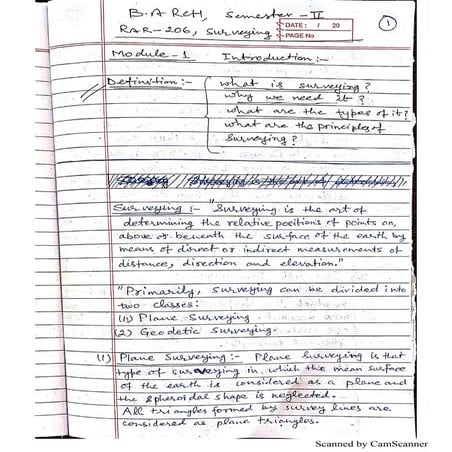 B.ARCH, Semester - II
RAR-206, Surveying
DATE: / 20
PAGE No
1
Module-1 Introduction:-
Definition:-
what is surveying?
why we need it?
what are the types of it?
what are the principles of
surveying?
Surveying :- "Surveying is the art of
determining the relative positions of points on,
above or beneath the surface of the earth by
means of direct or indirect measurements of
distance, direction and elevation."
"Primarily, surveying can be divided into
two classes:
(1) Plane Surveying
(2) Geodetic Surveying.
(1) Plane Surveying :- Plane Surveying is that
type of surveying in which the mean surface
of the earth is considered as a plane and
the spheroidal shape is neglected.
All triangles formed by survey lines are
considered as plane triangles.
Scanned by CamScanner